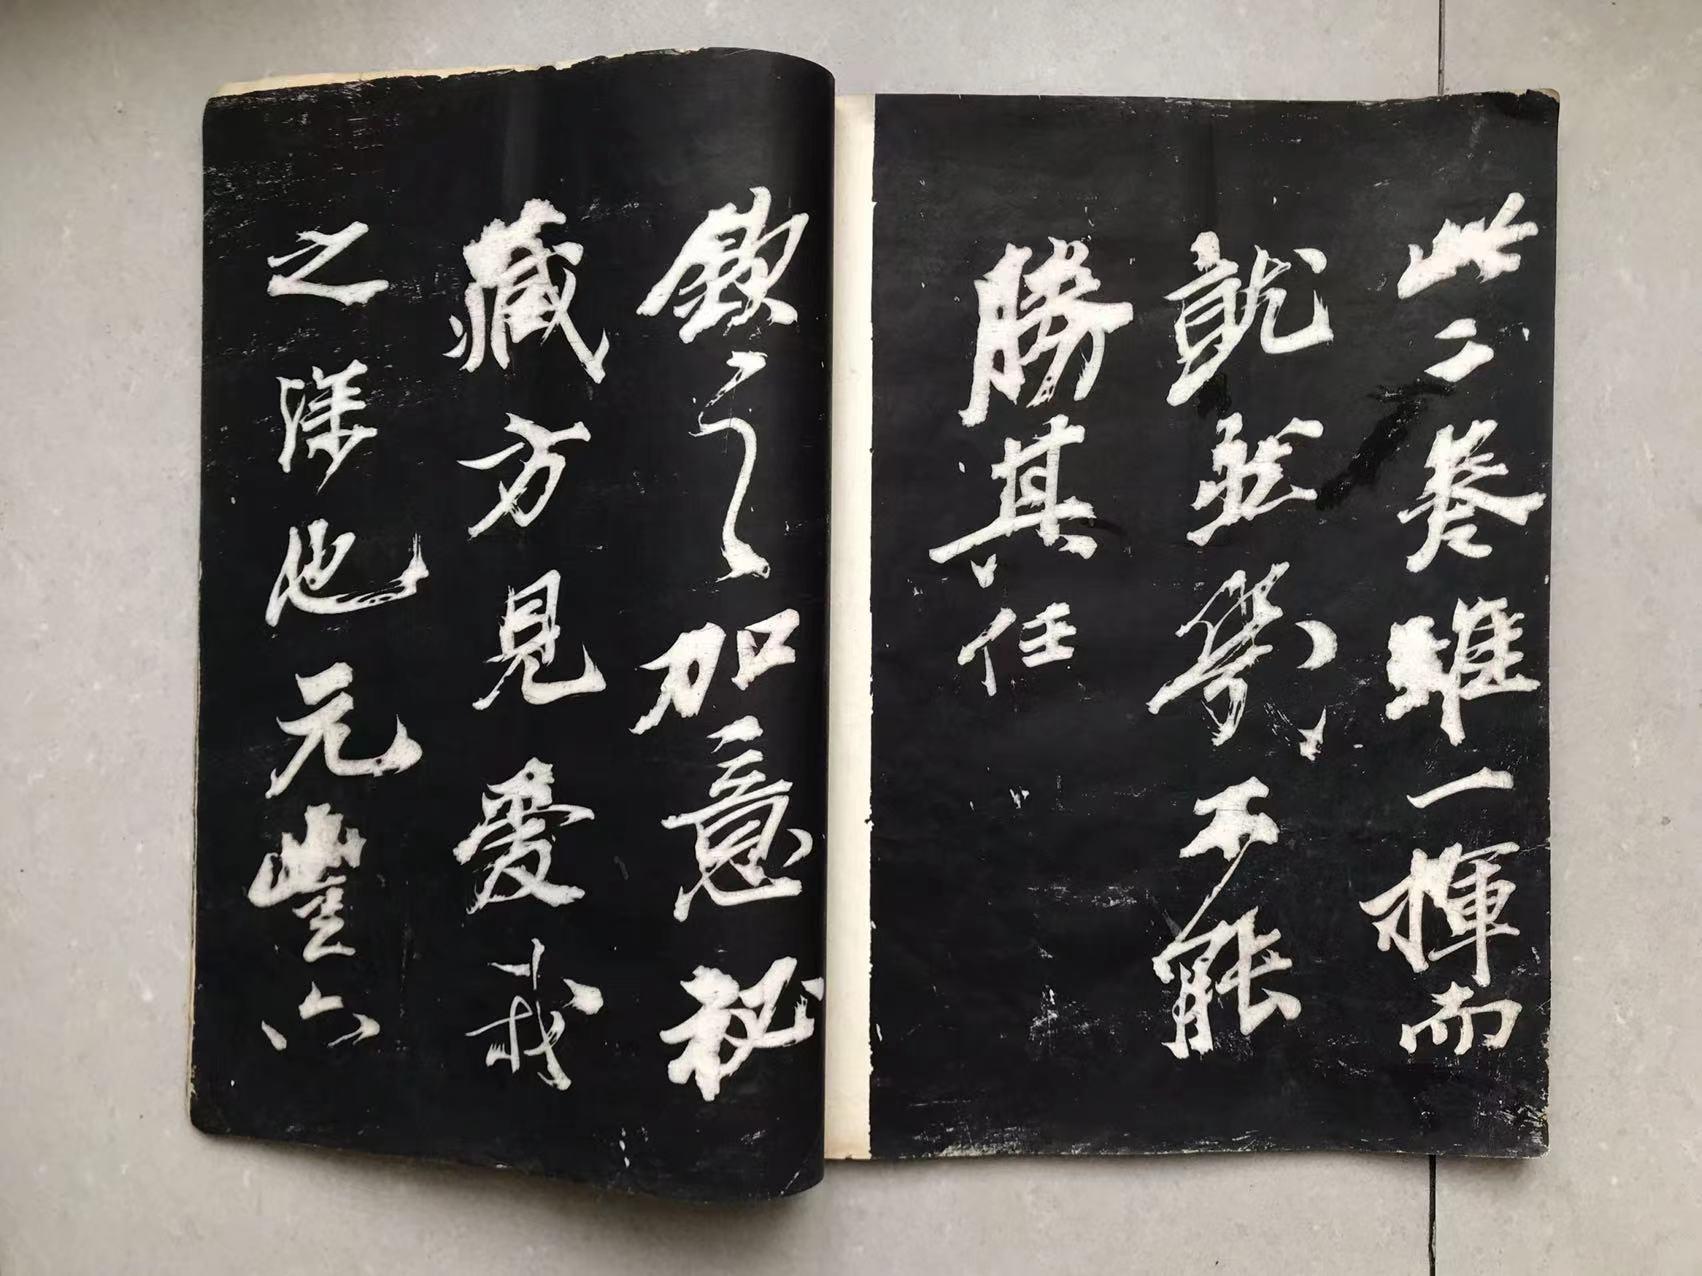 此二卷雖一揮而
就然幾不能
勝其任
欽之加意秘
藏方見愛我
之深也元豐六